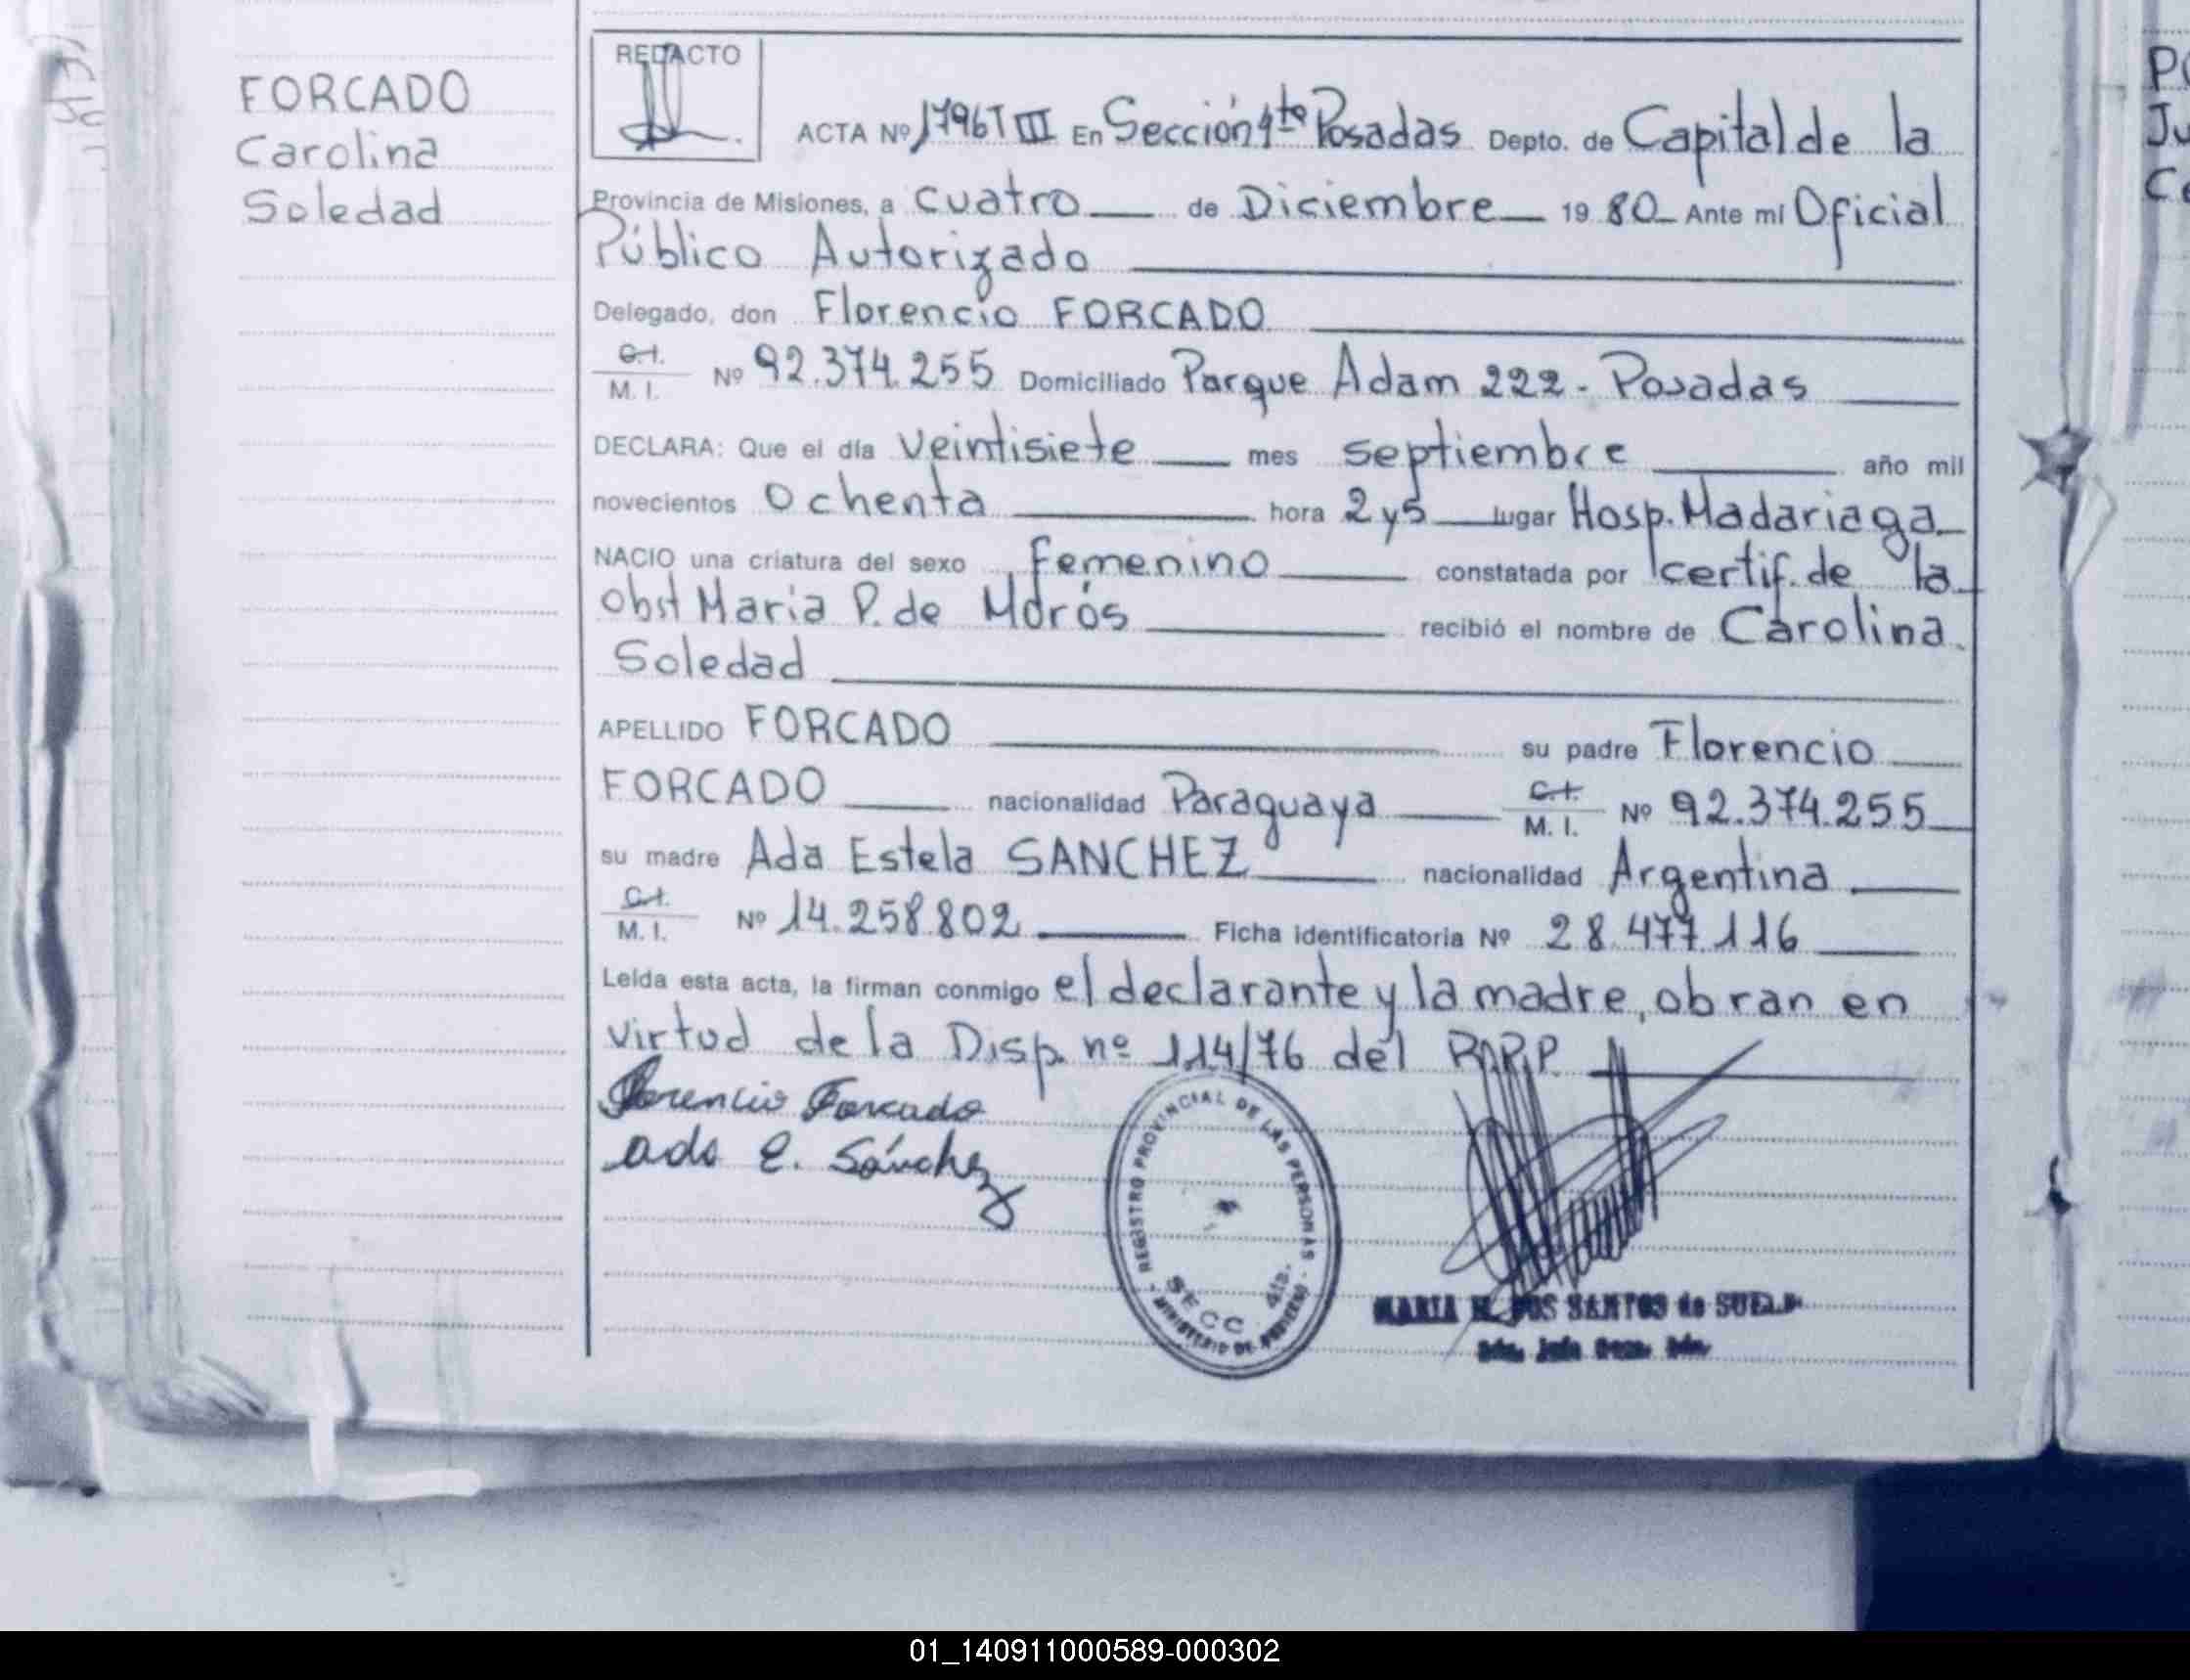 FORCADO
Carolina
Soledad
REDACTO
ACTA Nº 1796 T III En Sección 4ta Posadas Depto. de Capital de la
Provincia de Misiones, a cuatro de Diciembre 1980 Ante mi Oficial
Público Autorizado
Delegado, don Florencio FORCADO
C.I.
M. I. Nº 92.374.255 Domiciliado Parque Adam 222 - Posadas
DECLARA: Que el día veintisiete mes septiembre año mil
novecientos ochenta hora 2 y 5 lugar Hosp. Madariaga
NACIO una criatura del sexo Femenino constatada por certif. de la
obst Maria P. de Morós recibió el nombre de Carolina
Soledad
APELLIDO FORCADO su padre Florencio
FORCADO nacionalidad Paraguaya C.I. M. I. Nº 92.374.255
su madre Ada Estela SANCHEZ nacionalidad Argentina
C.I.
M. I. Nº 14.258.802 Ficha identificatoria Nº 28.477.116
Leída esta acta, la firman conmigo el declarante y la madre, obran en
virtud de la Disp. nº 114/76 del R.P.P.
Florencio Forcado
Ada E. Sánchez
REGISTRO PROVINCIAL DE LAS PERSONAS
SECC. 4ta.
MINISTERIO DE GOBIERNO
MARIA DOS SANTOS de SUELD
01_140911000589-000302